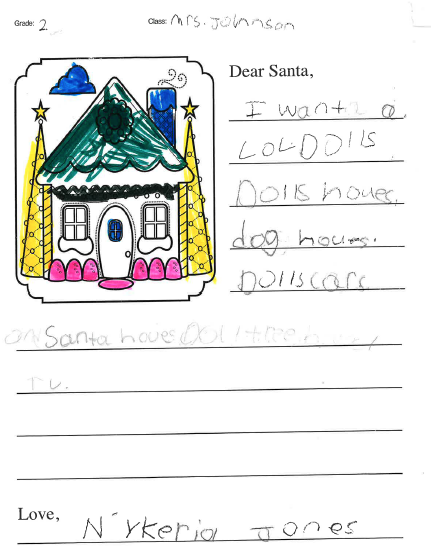 Grade: 2
Class: Mrs. Johnnson
Dear Santa,
I want a
LOL Dolls
Dolls houes.
dog houes.
Dollscars
on Santa houes Doll tree houes
Tv.
Love, N'ykeria Jones